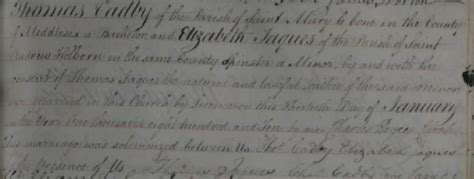 Thomas Cadby of the Parish of Saint Mary le bone in the County
of Middlesex a Bachelor and Elizabeth Jaques of the Parish of Saint
Andrews Holborn in the same County Spinster a Minor, by and with the
consent of Thomas Jaques the natural and lawful father of the said minor
married in this Church by Licence on this Thirtieth Day of January
in the Year One thousand eight hundred and Ten by me Charles Pryce
This marriage was solemnized between Us Thos. Cadby Elizabeth Jaques
the presence of Us Thomas Jaques John Cadby Jane Jaques